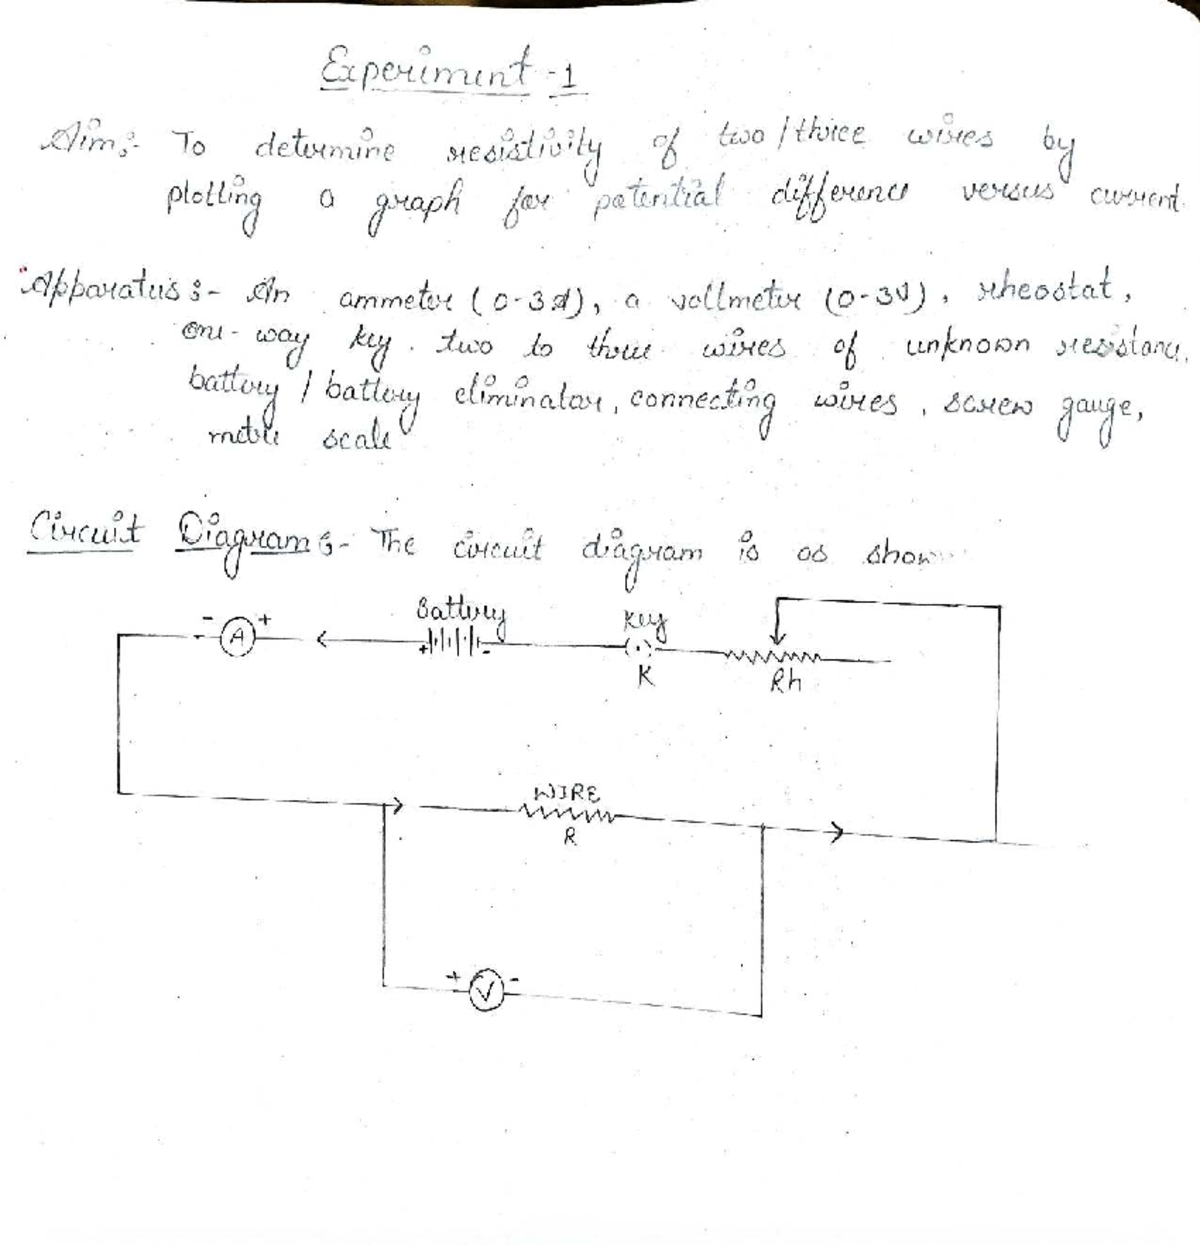 Experiment-1
Aim:- To determine resistivity of two/three wires by
plotting a graph for potential difference versus current.
Apparatus:- An ammeter (0-3A), a voltmeter (0-3V), rheostat,
one-way key. two to three wires of unknown resistance,
battery/battery eliminator, connecting wires, screw gauge,
metre scale
Circuit Diagram:- The circuit diagram is as show
Battery
Key
- A +
+ -
K
Rh
WIRE
R
+ V -